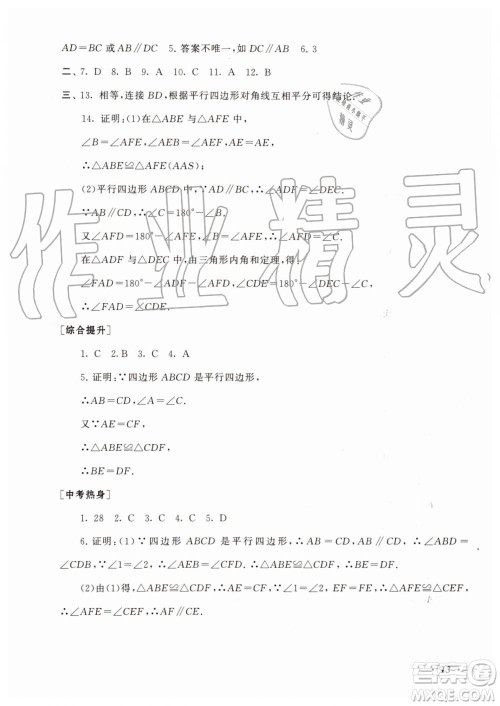 AD=BC或AB∥DC 5. 答案不唯一,如DC∥AB 6.3
二、7. D 8. B 9. A 10. C 11. A 12. B
三、13. 相等,连接BD,根据平行四边形对角线互相平分可得结论.
14. 证明:(1)在△ABE与△AFE中,
∠B=∠AFE,∠AEB=∠AEF,AE=AE,
∴△ABE≌△AFE(AAS);
(2)平行四边形ABCD中,AD∥BC,
∴∠ADF=∠DEC.
∵AB∥CD,∴∠C=180°-∠B.
又∠AFD=180°-∠AFE,∠B=∠AFE,
∴∠AFD=∠C.
在△ADF与△DEC中,由三角形内角和定理,得
∠FAD=180°-∠ADF-∠AFD,
∠CDE=180°-∠DEC-∠C,
∴∠FAD=∠CDE.
[综合提升]
1. C 2. B 3. C 4. A
5. 证明:∵四边形ABCD是平行四边形,
∴AB=CD,∠A=∠C.
又∵AE=CF,
∴△ABE≌△CDF,
∴BE=DF.
[中考热身]
1. 28 2. C 3. C 4. C 5. D
6. 证明:(1)∵四边形ABCD是平行四边形,∴AB=CD,AB∥CD,
∴∠ABE=∠CDF,∵∠1=∠2,∴△ABE≌△CDF,∴BE=DF.
(2)由(1)得,△ABE≌△CDF,∴AE=CF,∵∠1=∠2,
∴∠AFE=∠CEF,∴AF∥CE.
作业精灵